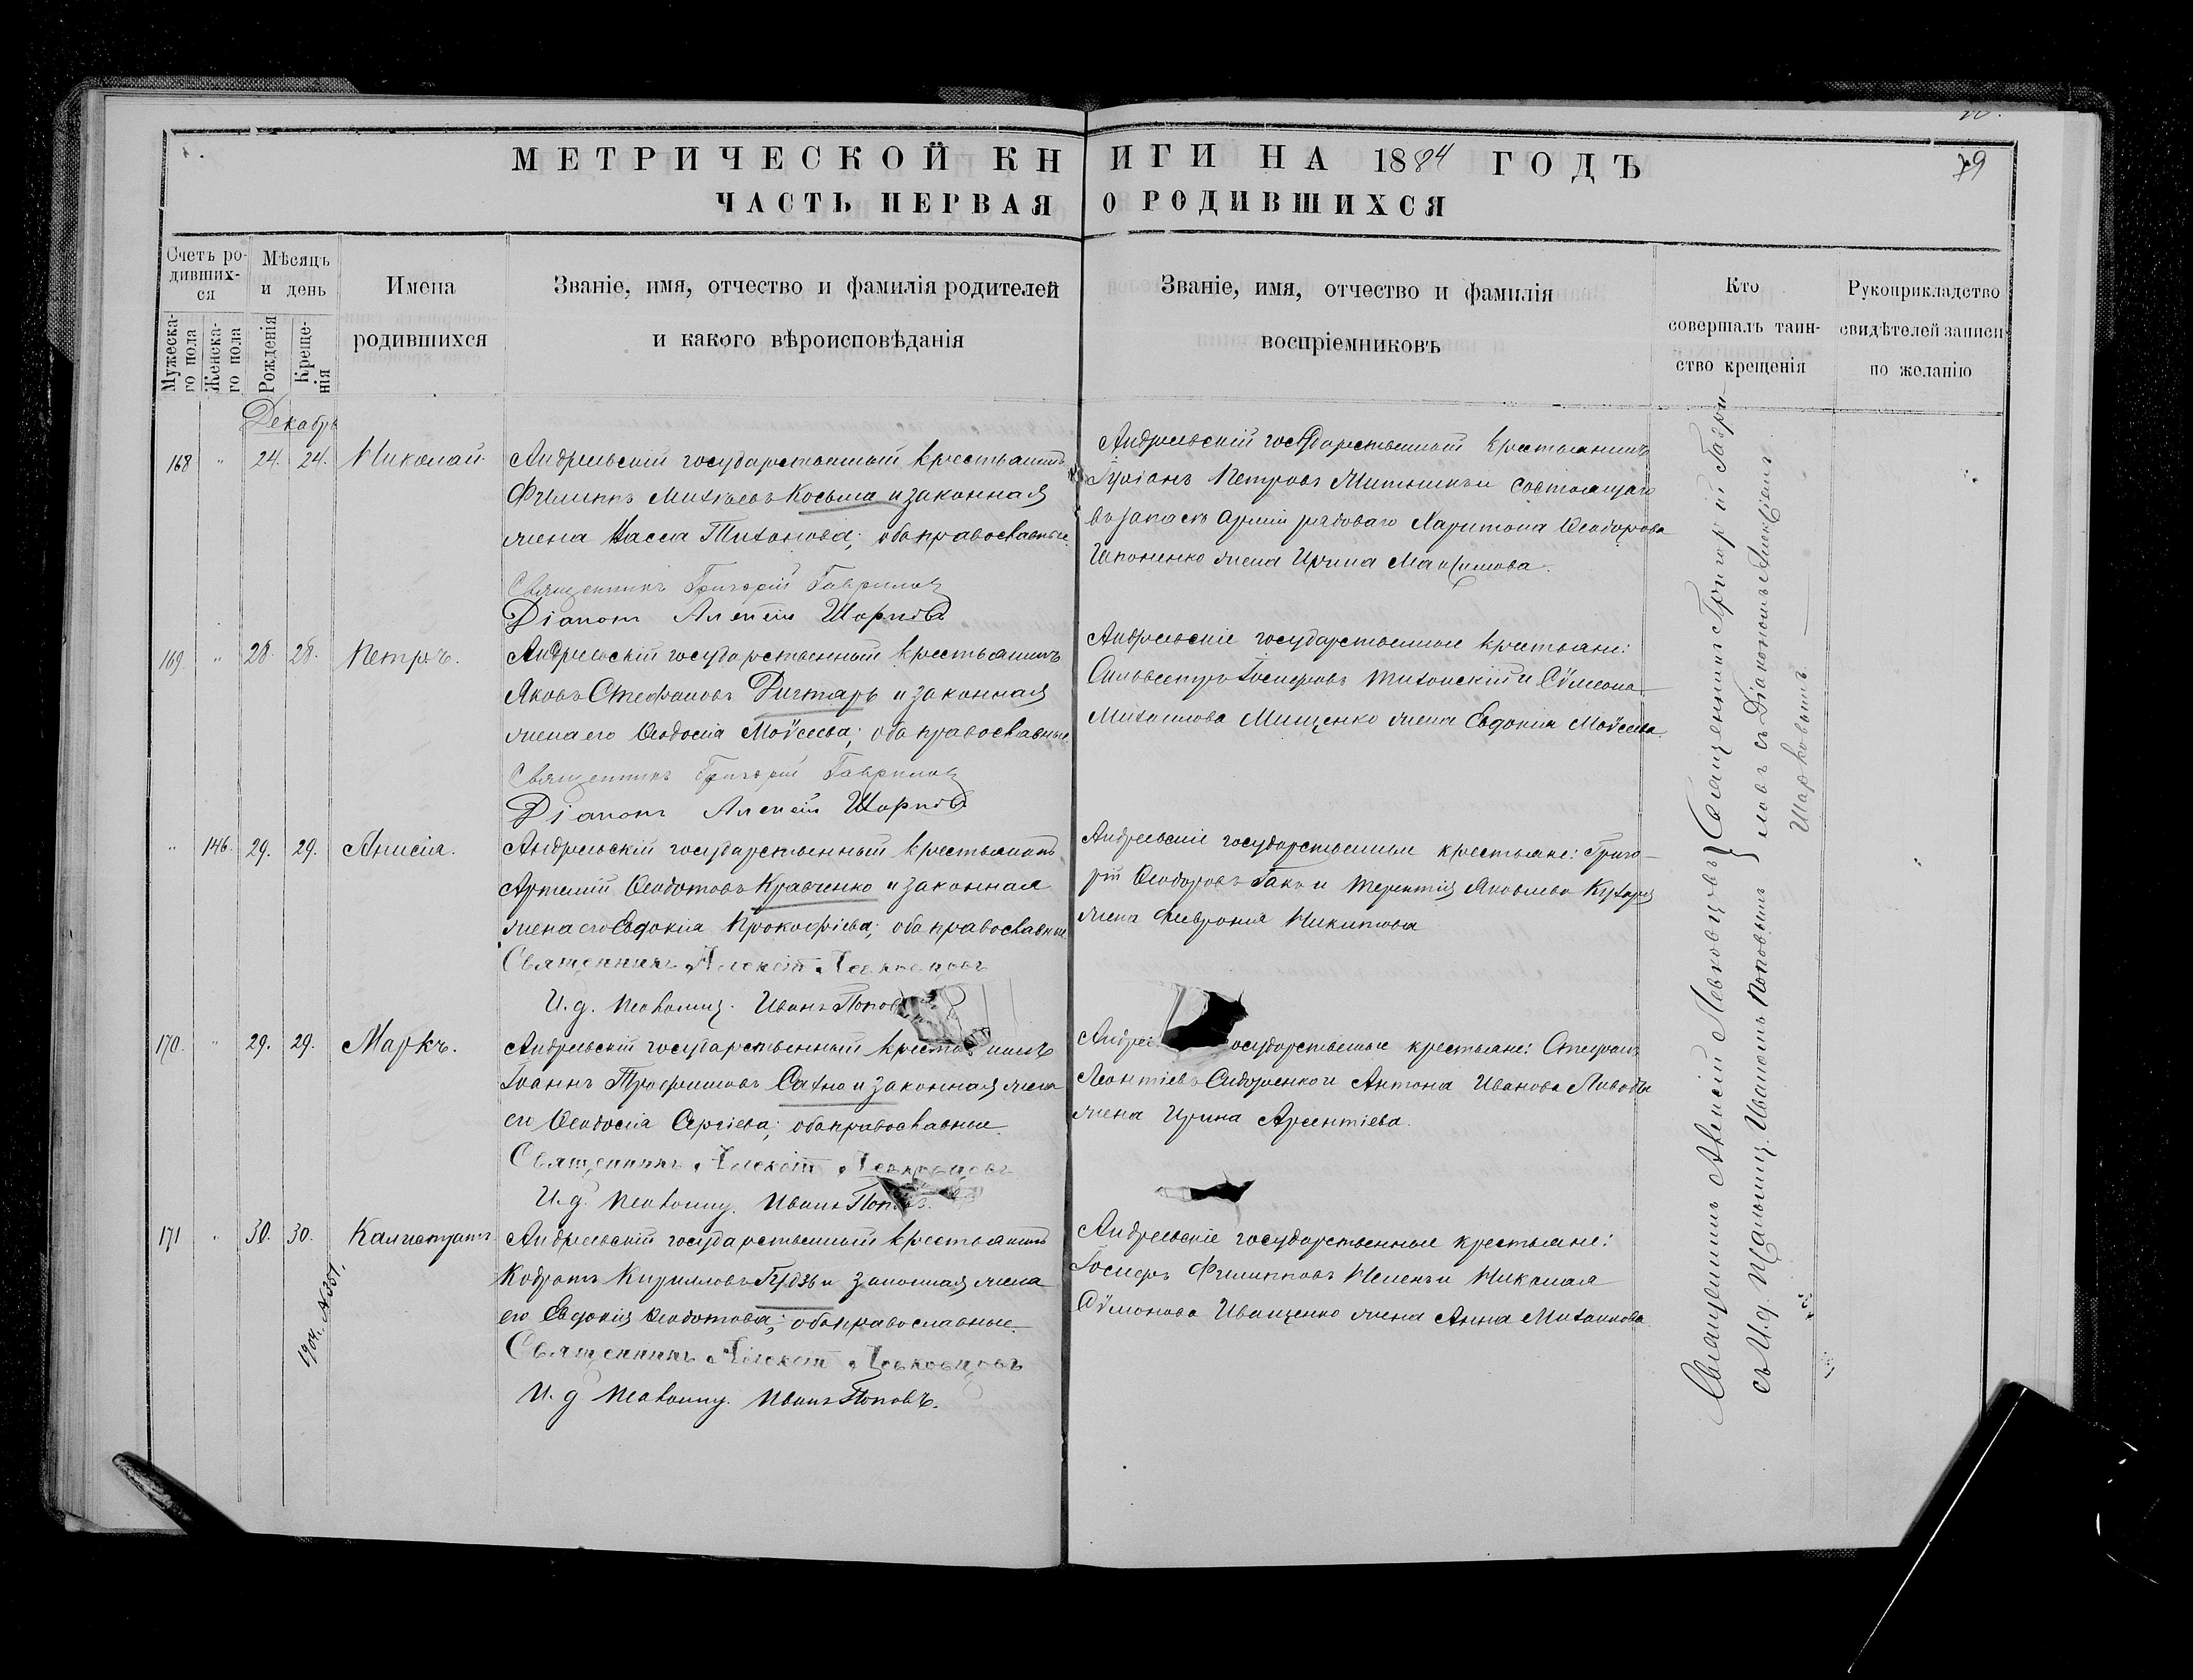 79
МЕТРИЧЕСКОЙ КНИГИ НА 1884 ГОДЪ
ЧАСТЬ ПЕРВАЯ О РОДИВШИХСЯ
Счетъ ро-
дивших-
ся
Мужеска-
го пола
Женска-
го пола
Мѣсяцъ
и день
Рожденія
Креще-
нія
Имена
родившихся
Званіе, имя, отчество и фамилія родителей
и какого вѣроисповѣданія
Званіе, имя, отчество и фамилія
воспріемниковъ
Кто
совершалъ таин-
ство крещенія
Рукоприкладство
свидѣтелей записи
по желанію
Декабрь
168 " 24. 24. Николай.
Андреевскій государственный крестьянинъ
Филиппъ Михѣевъ Косьма и законная
жена Васса Тихонова; оба православные.
Священникъ Григорій Гавриловъ
Діаконъ Алексѣй
Андреевскій государственный крестьянинъ
Петровъ и состоящаго
въ запасѣ арміи рядоваго Харитона Ѳеодорова
Шпоненко жена Ирина Максимова.
169 " 28. 28. Петръ.
Андреевскій государственный крестьянинъ
Яковъ Стефановъ Дигтарь и законная
жена его Ѳеодосія Моѵсеева; оба православные.
Священникъ Григорій Гавриловъ
Діаконъ Алексѣй
Андреевскіе государственные крестьяне:
Сильвестръ Іосифовъ Тихонскій и Сѵмеона
Михаилова Мищенко жена Евдокія Моѵсеева.
" 146. 29. 29. Анисія.
Андреевскій государственный крестьянинъ
Артемій Ѳеодотовъ Кравченко и законная
жена его Евдокія Прокофіева; оба православные.
Священникъ Алексѣй Левковцовъ
И. д. Псаломщ. Иванъ Поповъ
Андреевскіе государственные крестьяне: Григо-
рій Ѳеодоровъ Гако и Терентія Яковлева Кухаря
жена Феврония Никитова
170. " 29. 29. Маркъ.
Андреевскій государственный крестьянинъ
Іоаннъ Трофимовъ Сахно и законная жена
его Ѳеодосія Сергіева; оба православные.
Священникъ Алексѣй Левковцовъ
И. д. Псаломщ. Иванъ Поповъ.
государственные крестьяне: Стефанъ
Леонтіевъ Сидоренко и Антона Иванова
жена Ирина Арсентіева.
171 " 30. 30. Калистратъ.
1904. № 351.
Андреевскій государственный крестьянинъ
Кодратъ Кирилловъ Гудзь и законная жена
его Евдокія Ѳеодотова; оба православные.
Священникъ Алексѣй Левковцовъ
И. д Псаломщ. Иванъ Поповъ.
Андреевскіе государственные крестьяне:
Іосифъ Филипповъ и Николая
Сѵмонова Иващенко жена Анна Михаилова.
Священникъ Алексѣй Левковцовъ
съ И. д. Псаломщ. Иваномъ Поповымъ
Священникъ Григорій Гаври-
ловъ съ Діакономъ Алексѣемъ